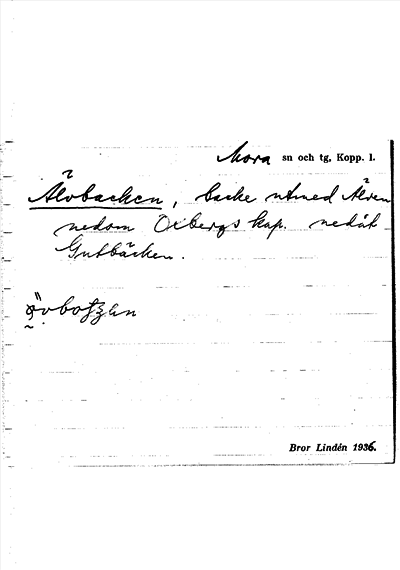 Mora sn och tg, Kopp. l.
Älvbacken, backe utmed Älven
nedom Oxbergs kap. nedåt
Gutbäcken.
Bror Lindén 1936.